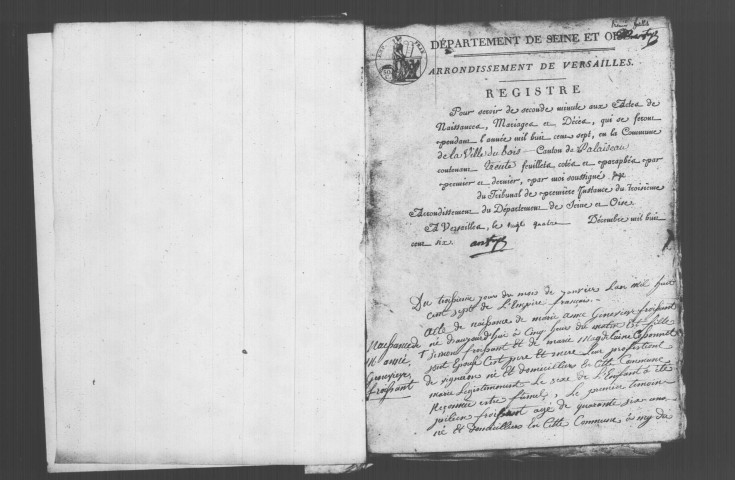 DÉPARTEMENT DE SEINE ET OISE
ARRONDISSEMENT DE VERSAILLES.
REGISTRE
Pour servir de seconde minute aux Actes de
Naissances, Mariages et Décès, qui se feront
pendant l'année mil huit cent sept, en la Commune
de la Ville du bois Canton de Palaiseau
contenant trente feuillets cotés et paraphés par
premier et dernier, par moi soussigné juge
du Tribunal de première Instance du troisième
Arrondissement du Département de Seine et Oise.
A Versailles, le vingt quatre Décembre mil huit
cent six.
Du troisieme jour du mois de janvier L'an mil huit
cent sept de L'Empire français.
Acte de naissance de marie anne Genevieve froissant
né d'aujourd'hui à cinq heures du matin Est fille
de Simon froissant et de marie Magdelaine
sont Epouse C'est pere et mere Leur profession
de vigneron né et domiciliers de Cette Commune
marié Legitimement Le sexe de L'Enfant a été
Reconnue estre fumel, Le premier temoin
froissant agé de quarante six ans
né & Domiciliers En Cette Commune à
Naissance de
M anne
Genevieve
froissant